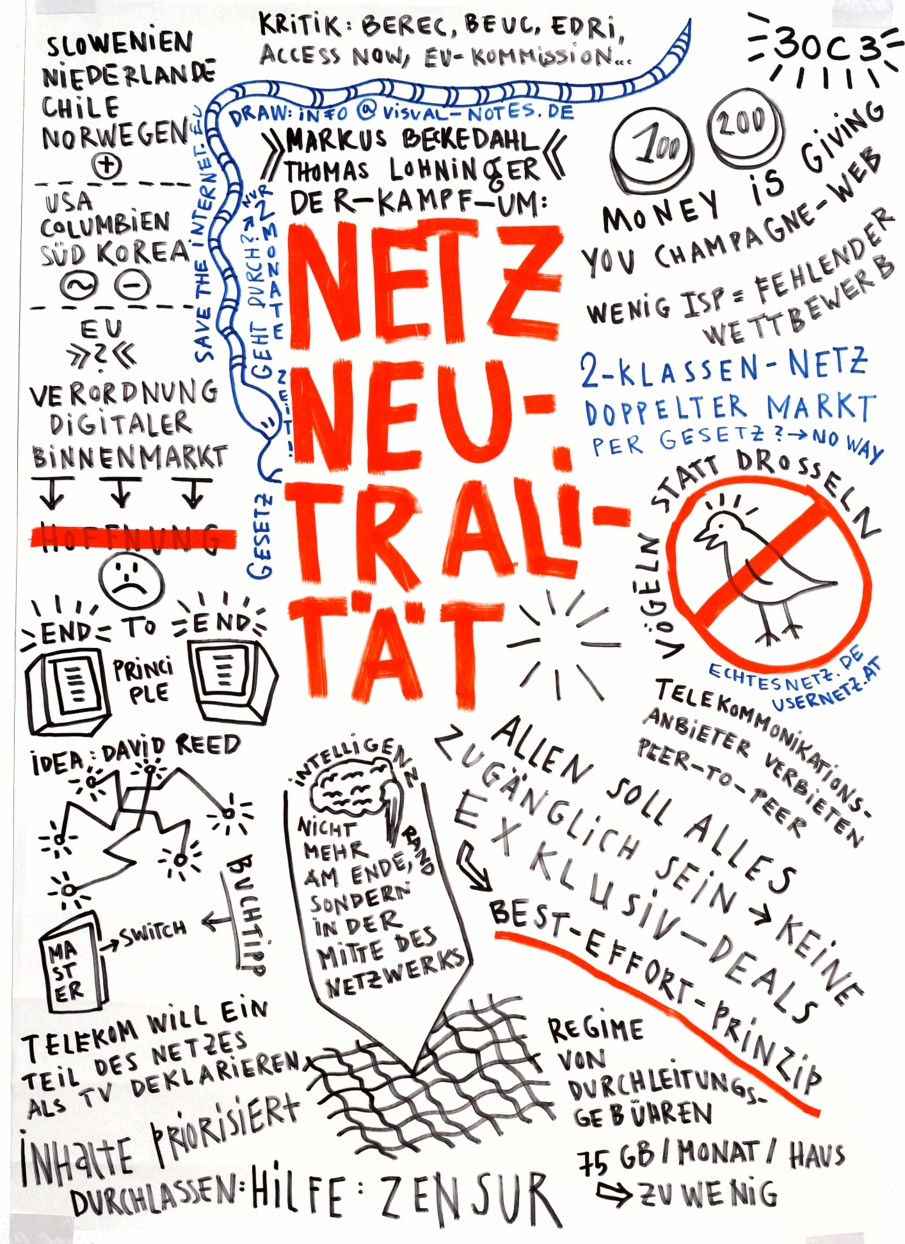 SLOWENIEN
NIEDERLANDE
CHILE
NORWEGEN
+
USA
COLUMBIEN
SÜD KOREA
~ -
EU
»?«
VERORDNUNG
DIGITALER
BINNENMARKT
HOFFNUNG
END TO END
PRINCI
PLE
IDEA: DAVID REED
BUCHTIPP
MA
ST
ER
→ SWITCH
TELEKOM WILL EIN
TEIL DES NETZES
ALS TV DEKLARIEREN
INHALTE PRIORISIERT
DURCHLASSEN: HILFE: ZENSUR
KRITIK: BEREC, BEUC, EDRI,
ACCESS NOW, EU-KOMMISSION...
DRAW: INFO @ VISUAL-NOTES.DE
SAVE THE INTERNET.EU
GEHT DURCH? → NUR
2 MONATE
ZEIT!
GESETZ
»MARKUS BECKEDAHL«
THOMAS LOHNINGER
DER-KAMPF-UM:
NETZ
NEU-
TRALI-
TÄT
INTELLIGENN
RAND
NICHT
MEHR
AM ENDE,
SONDERN
IN DER
MITTE DES
NETZWERKS
30C3
100 200
MONEY IS GIVING
YOU CHAMPAGNE-WEB
WENIG ISP = FEHLENDER
WETTBEWERB
2-KLASSEN-NETZ
DOPPELTER MARKT
PER GESETZ? → NO WAY
VÖGELN STATT DROSSELN
ECHTESNETZ.DE
USERNETZ.AT
TELEKOMMONIKATIONS-
ANBIETER VERBIETEN
PEER-TO-PEER
ALLEN SOLL ALLES
ZUGÄNGLICH SEIN → KEINE
EXKLUSIV-DEALS
BEST-EFFORT-PRINZIP
REGIME
VON
DURCHLEITUNGS-
GEBÜHREN
75 GB/MONAT/HAUS
⇒ ZU WENIG